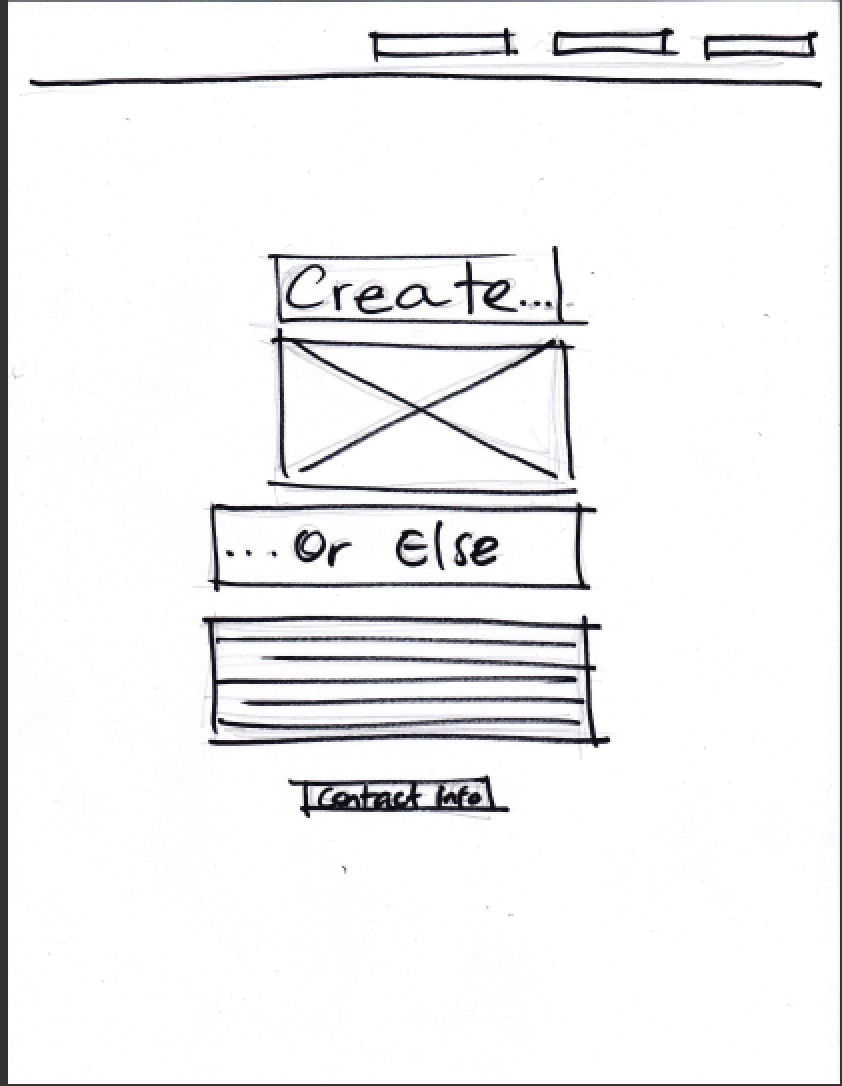 Create...
... Or Else
Contact Info